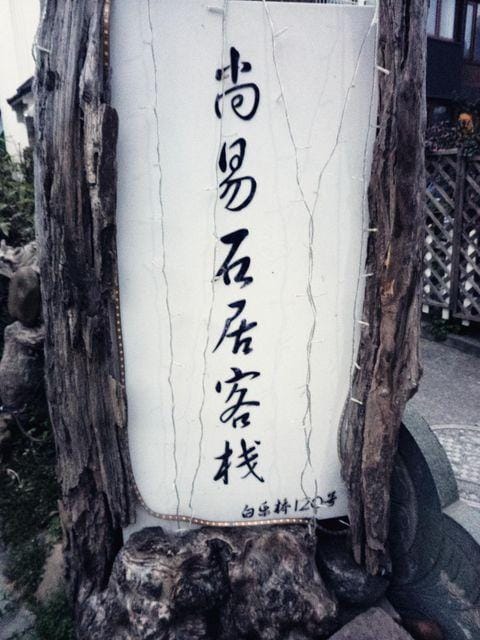 尚易石居客栈
白乐桥120号